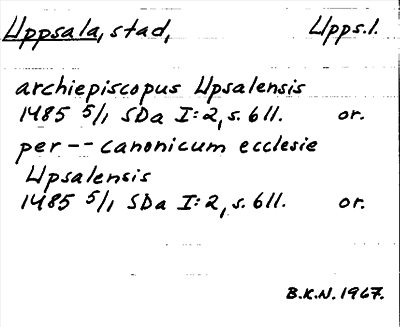 Uppsala, stad, Upps.l.
archiepiscopus Upsalensis
1485 5/1 SDa I:2, s. 611. or.
per -- canonicum ecclesie
Upsalensis
1485 5/1 SDa I:2, s. 611. or.
B.K.N. 1967.